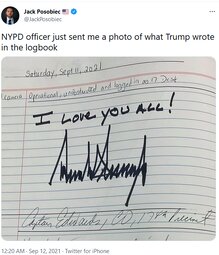 Jack Posobiec
@JackPosobiec
NYPD officer just sent me a photo of what Trump wrote
in the logbook
Saturday, Sept 11, 2021
Operational, uninstructed and logged in on 17 Desk
I LOVE YOU ALL!
Captain Edwards, CO, 17th Precinct
12:20 AM · Sep 12, 2021 · Twitter for iPhone